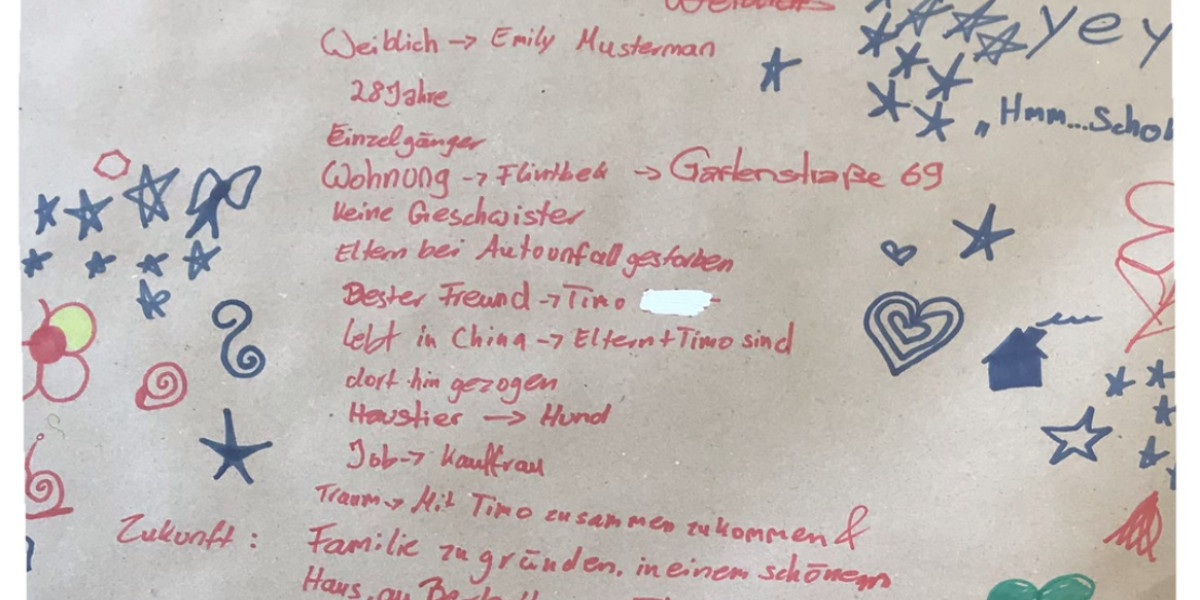 yey
Weiblich → Emily Musterman
28 Jahre
"Hmm...Scho
Einzelgänger
Wohnung → Flintbek → Gartenstraße 69
keine Geschwister
Eltern bei Autounfall gestorben
Bester Freund → Timo
lebt in China → Eltern + Timo sind
dort hin gezogen
Haustier → Hund
Job → Kauffrau
Traum → Mit Timo zusammen zu kommen &
Zukunft: Familie zu gründen, in einem schönem
Haus,